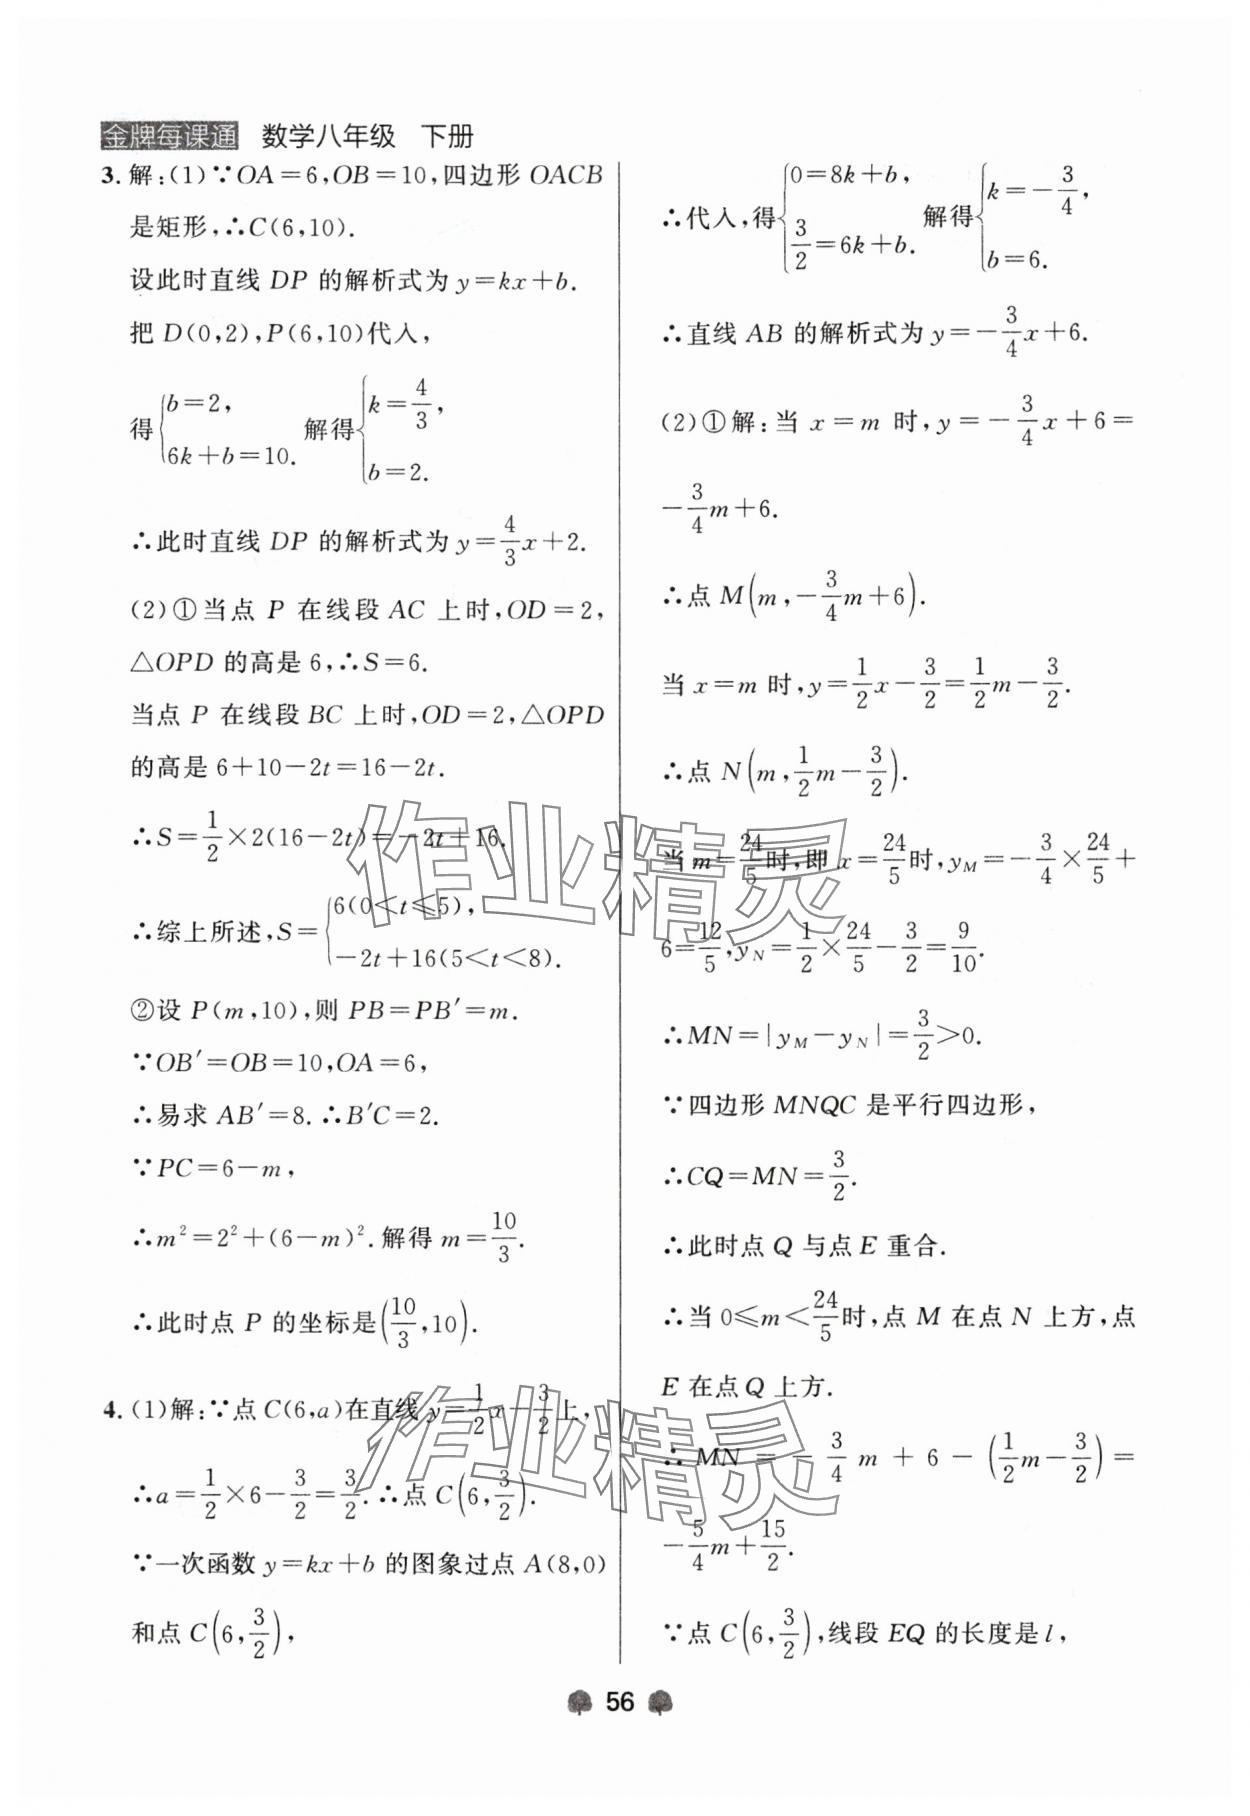 金牌每课通 数学八年级 下册
3. 解:(1)∵OA=6,OB=10,四边形 OACB
是矩形,∴C(6,10).
设此时直线 DP 的解析式为 y=kx+b.
把 D(0,2),P(6,10)代入,
得{b=2, 6k+b=10. 解得{k=4/3, b=2.
∴此时直线 DP 的解析式为 y=4/3x+2.
(2)①当点 P 在线段 AC 上时,OD=2,
△OPD 的高是 6,∴S=6.
当点 P 在线段 BC 上时,OD=2,△OPD
的高是 6+10-2t=16-2t.
∴S=1/2×2(16-2t)=-2t+16.
∴综上所述,S={6(0<t≤5), -2t+16(5<t<8).
②设 P(m,10),则 PB=PB′=m.
∵OB′=OB=10,OA=6,
∴易求 AB′=8.∴B′C=2.
∵PC=6-m,
∴m²=2²+(6-m)².解得 m=10/3.
∴此时点 P 的坐标是(10/3,10).
4. (1)解:∵点 C(6,a)在直线 y=1/2x-3/2上,
∴a=1/2×6-3/2=3/2.∴点 C(6,3/2).
∵一次函数 y=kx+b 的图象过点 A(8,0)
和点 C(6,3/2),
∴代入,得{0=8k+b, 3/2=6k+b. 解得{k=-3/4, b=6.
∴直线 AB 的解析式为 y=-3/4x+6.
(2)①解:当 x=m 时,y=-3/4x+6=
-3/4m+6.
∴点 M(m,-3/4m+6).
当 x=m 时,y=1/2x-3/2=1/2m-3/2.
∴点 N(m,1/2m-3/2).
当 m=24/5时,即 x=24/5时,yM=-3/4×24/5+
6=12/5,yN=1/2×24/5-3/2=9/10.
∴MN=|yM-yN|=3/2>0.
∵四边形 MNQC 是平行四边形,
∴CQ=MN=3/2.
∴此时点 Q 与点 E 重合.
∴当 0≤m<24/5时,点 M 在点 N 上方,点
E 在点 Q 上方.
∴MN=-3/4m+6-(1/2m-3/2)=
-5/4m+15/2.
∵点 C(6,3/2),线段 EQ 的长度是 l,
56
作业精灵
作业精灵